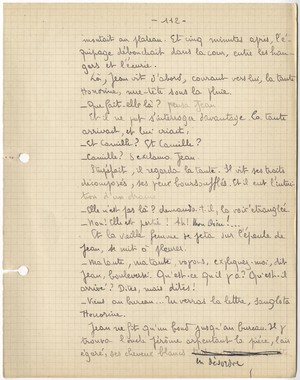 - 112 -
montait au plateau. Et cinq minutes après, l'é-
quipage débouchait dans la cour, entre les han-
gars et l'écurie.
Là, Jean vit d'abord, courant vers lui, la tante
Honorine, nue-tête sous la pluie.
_ Que fait-elle là? pensa Jean
Et il ne put s'interroger davantage. La tante
arrivait, et lui criait:
_ Et Camille? Et Camille?
_ Camille? s'exclama Jean.
Stupéfait, il regarda la tante. Il vit ses traits
décomposés, ses yeux boursouflés. Et il eut l'intui-
tion d'un drame.
_ Elle n'est pas là? demanda-t-il, la voix étranglée.
_ Non! Elle est partie! Ah! Mon Dieu!...
Et la vieille femme se jeta sur l'épaule de
Jean, se mit à pleurer.
_ Ma tante, ma tante, voyons, expliquez-moi, dit
Jean, bouleversé. Qu'est-ce qu'il y a? Qu'est-il
arrivé? Dites, mais dites!
_ Viens au bureau... Tu verras la lettre, sanglota
Honorine.
Jean ne fit qu'un bond jusqu'au bureau. Il y
trouva l'oncle Jérôme arpentant la pièce, l'air
égaré, ses cheveux blancs
en désordre